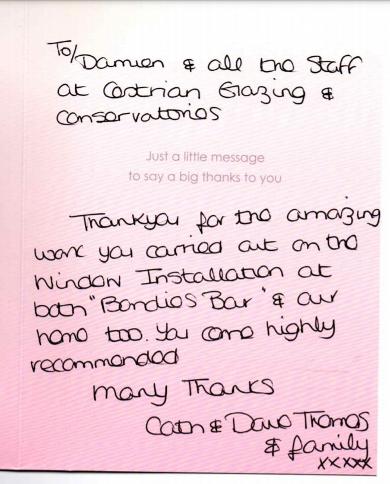 To/ Damien & all the Staff
at Cestrian Glazing &
Conservatories
Just a little message
to say a big thanks to you
Thankyou for the amazing
work you carried out on the
Window Installation at
both "Bondies Bar" & our
home too. You come highly
recommended
Many Thanks
Cath & Dave Thomas
& family
xxxxx